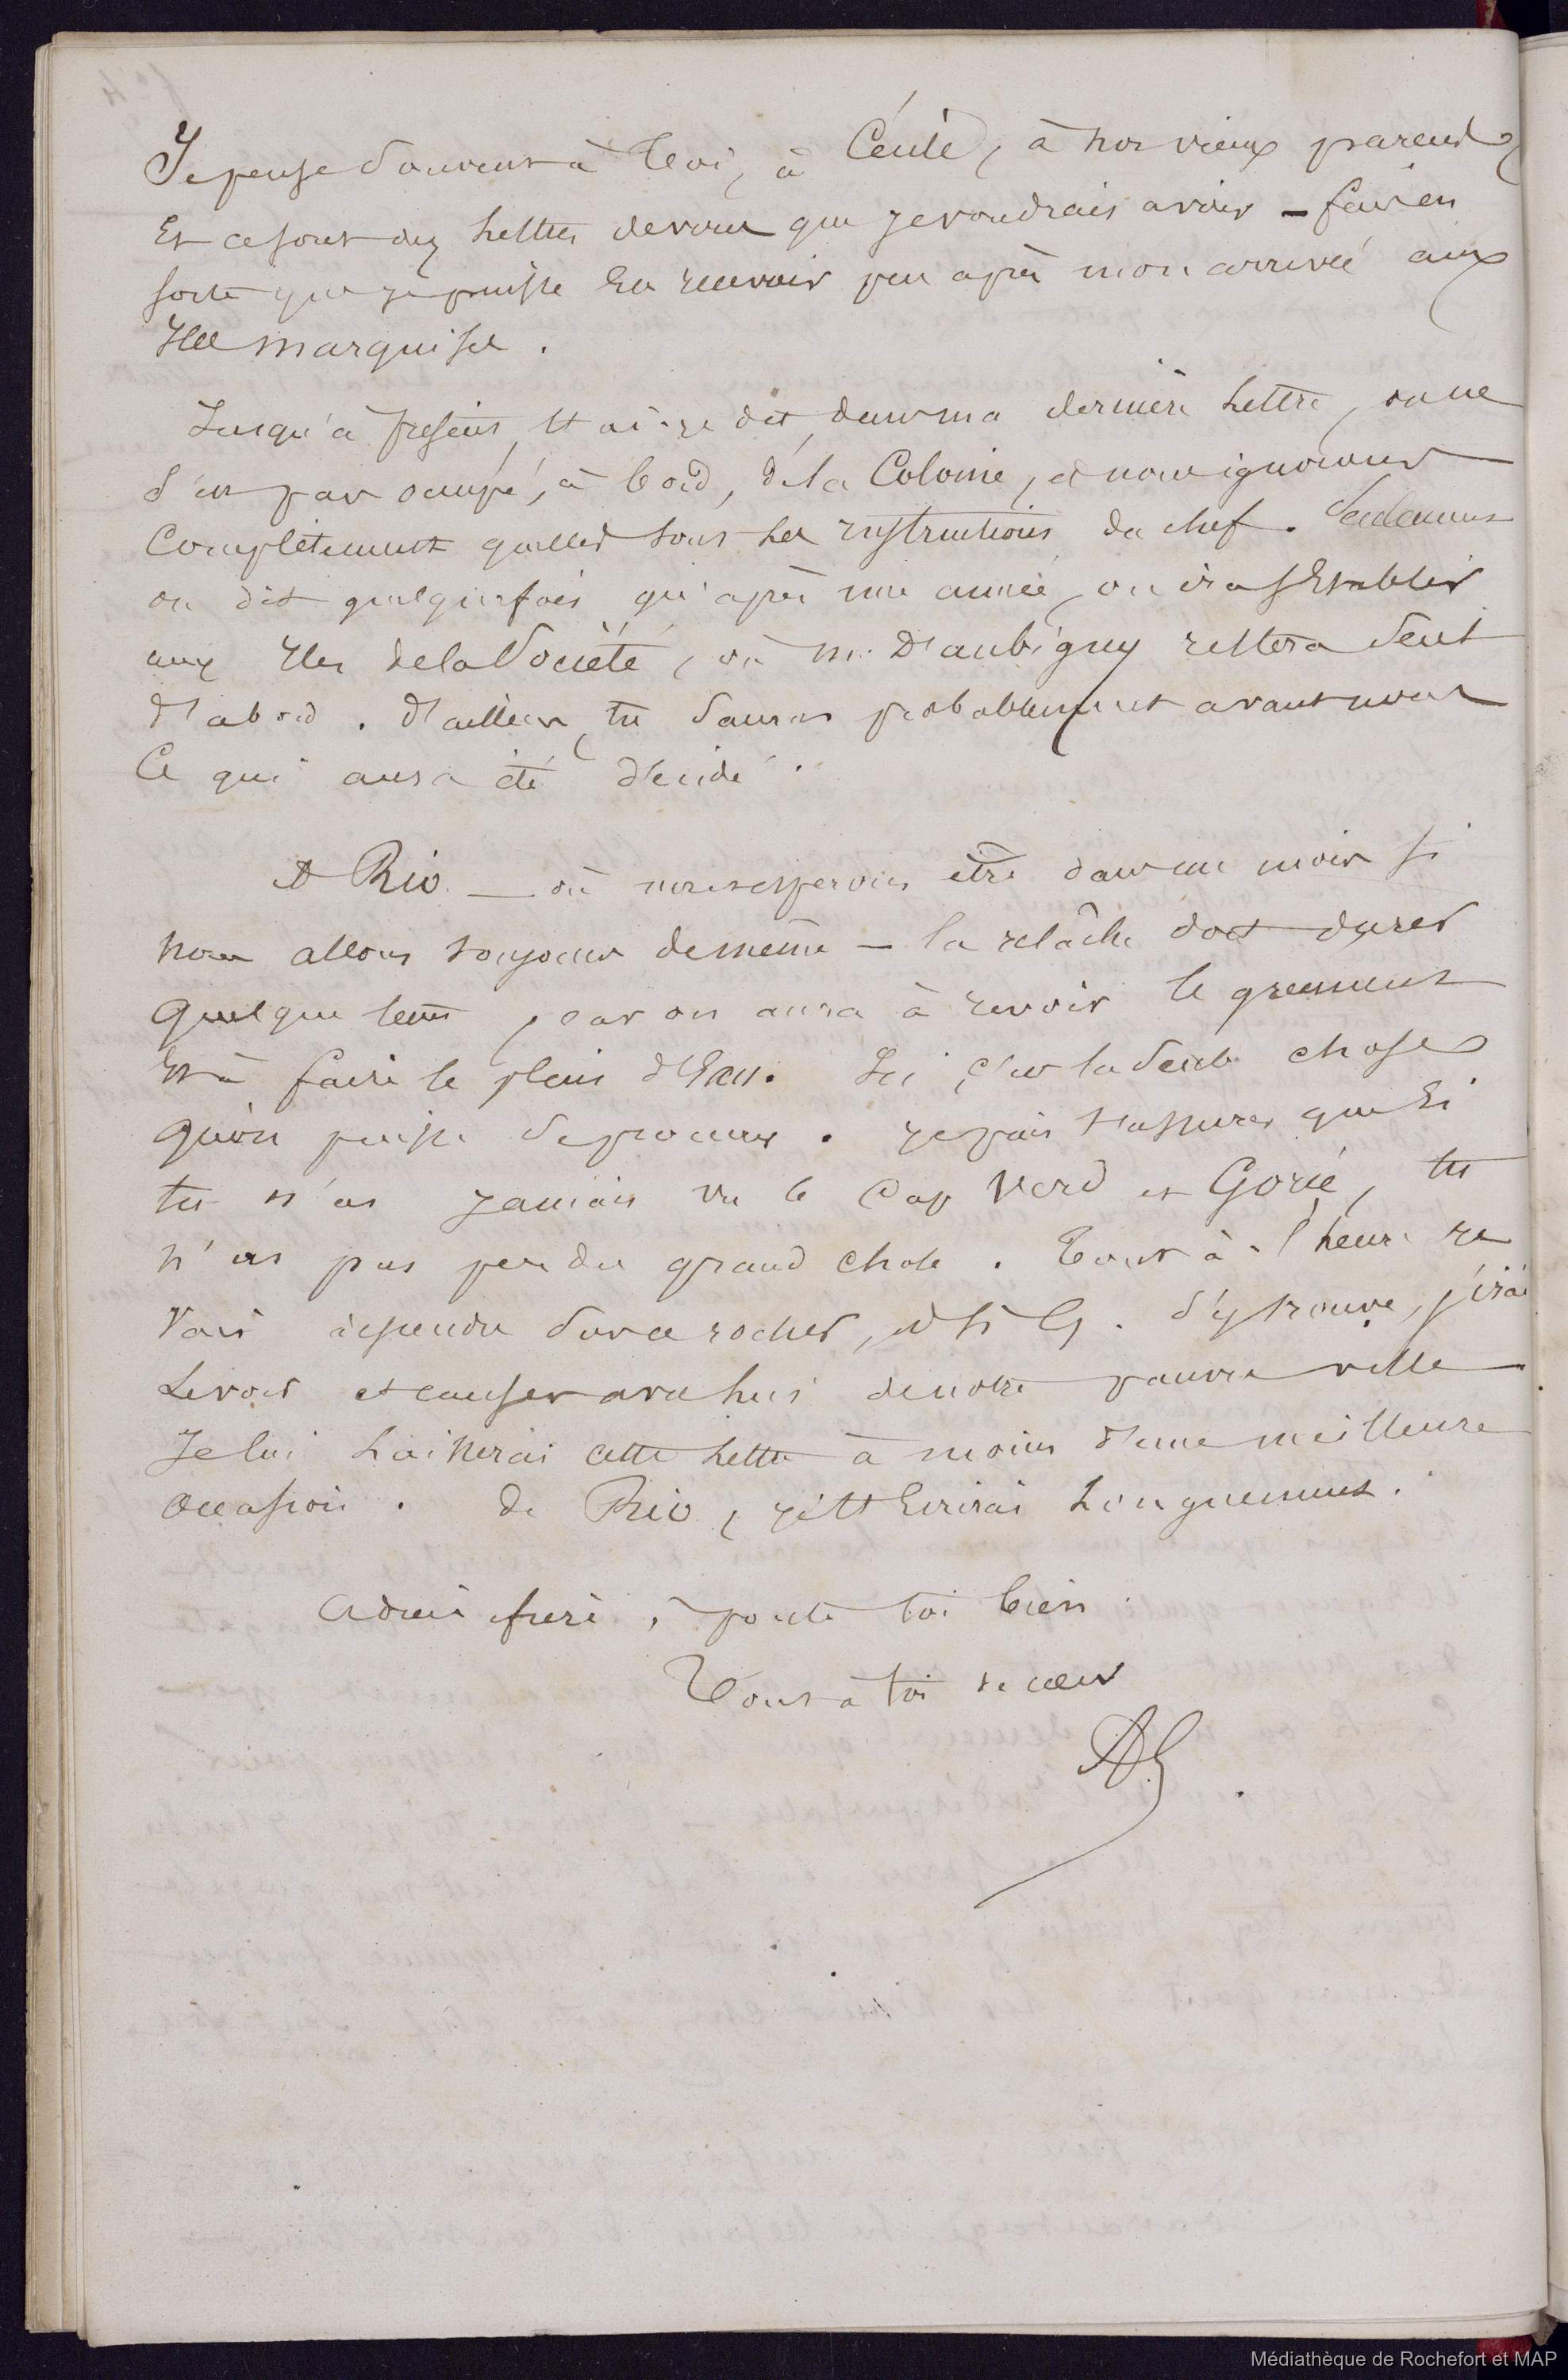 Je pense souvent à toi, à Cécile, à nos vieux parents
Et ce sont des lettres de vous que je voudrais avoir – fais en
sorte que je puisse en recevoir peu après mon arrivée aux
Iles marquises.
Jusqu'à présent, t'ai-je dit dans ma dernière lettre, on ne
s'est pas occupé, à bord, de la Colonie, et nous ignorons
Complètement quelles sont les instructions du chef. Seulement
on dit quelquefois qu'après une année, on ira s'Etablir
aux Iles de la Société, où Mr. D'aubigny restera seul
d'abord. D'ailleurs, tu sauras probablement avant nous
Ce qui aura été décidé.
A Rio – où nous espérons être dans un mois si
nous allons toujours de même – la relâche doit durer
quelque tems, car on aura à revoir le gréement
Et à faire le plein d'Eau. Ici, c'est la seule chose
qu'on puisse se procurer. je puis t'assurer que si
tu n'as jamais vu le Cap Verd et Gorée, tu
n'as pas perdu grand chose. Tout à l'heure je
vais descendre sur ce rocher, et si G. s'y trouve, j'irai
Le voir et causer avec lui de notre pauvre ville
Je lui Laisserai cette lettre à moins d'une meilleure
occasion. de Rio, je t'Ecrirai Longuement.
adieu frère, porte toi bien.
Tout à toi de cœur
AG
Médiathèque de Rochefort et MAP